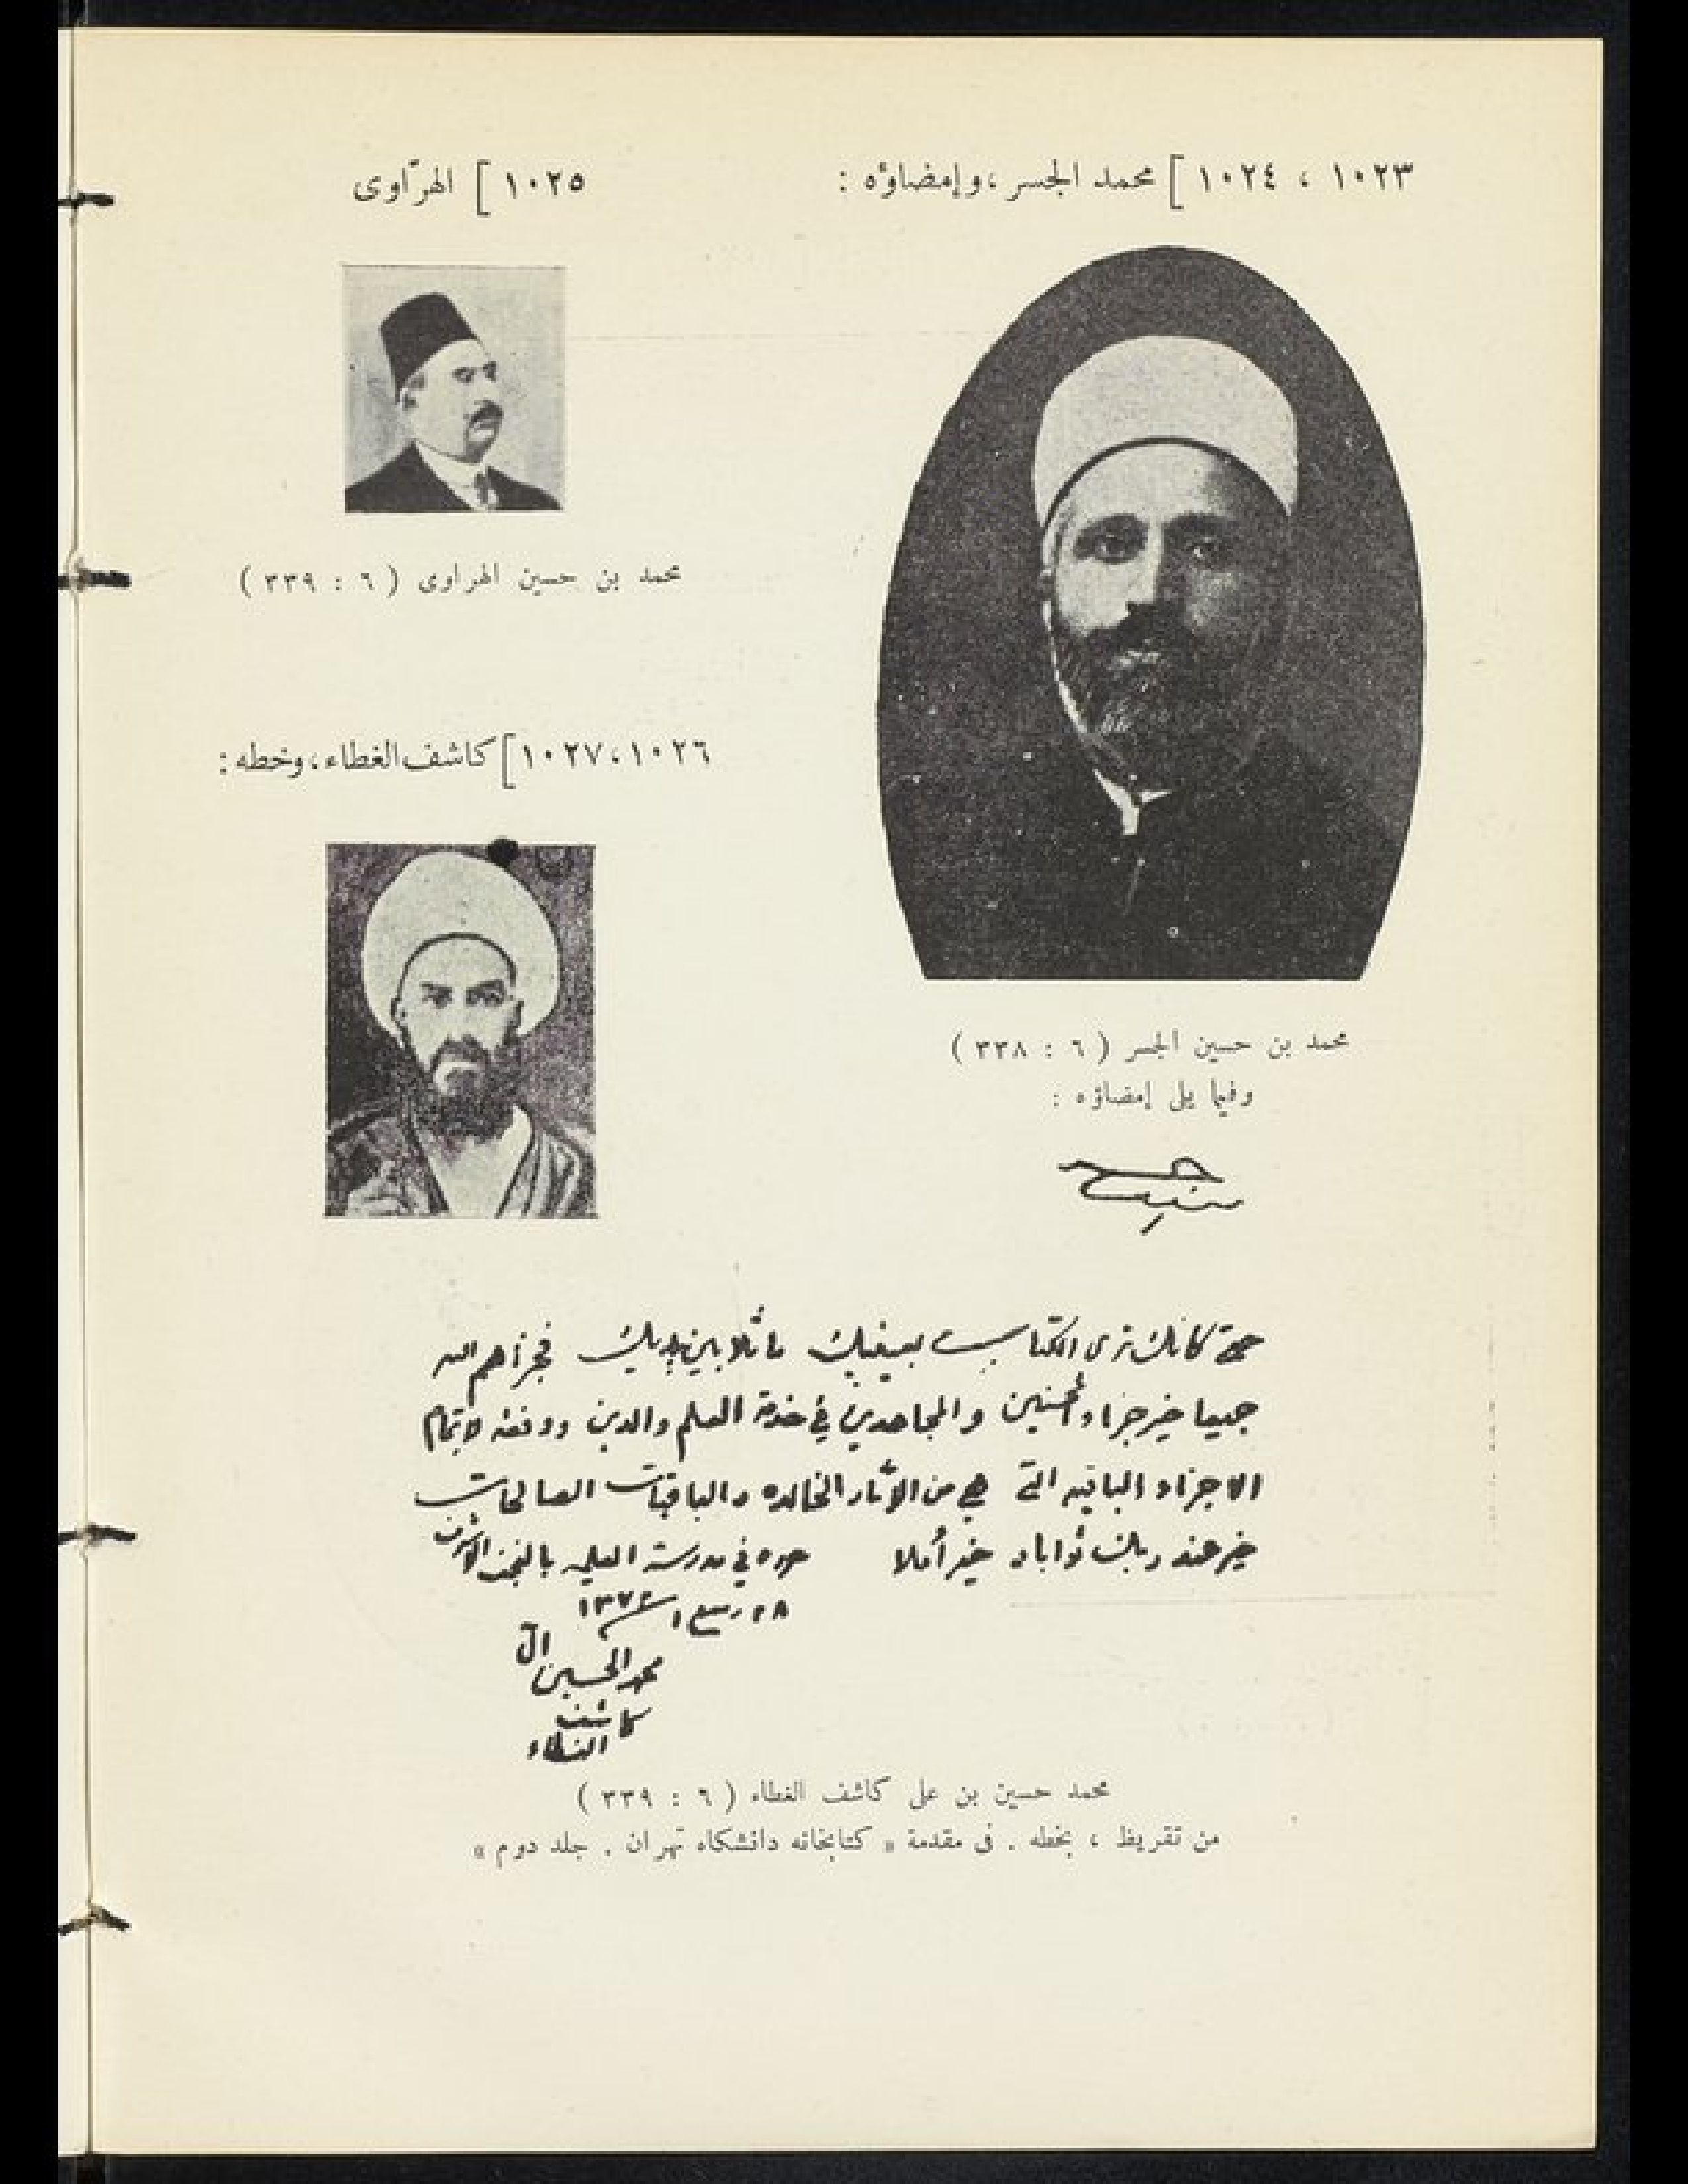 ١٠٢٣ ، ١٠٢٤ ] محمد الجسر ، وإمضاؤه :
محمد بن حسين الجسر ( ٦ : ٣٣٨ )
وفيما يلى إمضاؤه :
١٠٢٥ ] الهرّاوى
محمد بن حسين الهراوى ( ٦ : ٣٣٩ )
١٠٢٦ ، ١٠٢٧ ] كاشف الغطاء ، وخطه :
حتى كانك ترى الكتاب بعينيك ماثلا بين يديك فجزاهم الله
جميعا خير جزاء المحسنين والمجاهدين في خدمة العلم والدين ووفقه لاتمام
الاجزاء الباقيه التي هي من الآثار الخالده والباقيات الصالحات
خير عند ربك ثوابا وخير أملا حرره في مدرسته العلميه بالنجف الاشرف
٢٨ ربيع ١ ١٣٧٢
محمد الحسين آل
كاشف
الغطاء
محمد حسين بن على كاشف الغطاء ( ٦ : ٣٣٩ )
من تقريظ ، بخطه . فى مقدمة « كتابخانه دانشكاه تهران . جلد دوم »